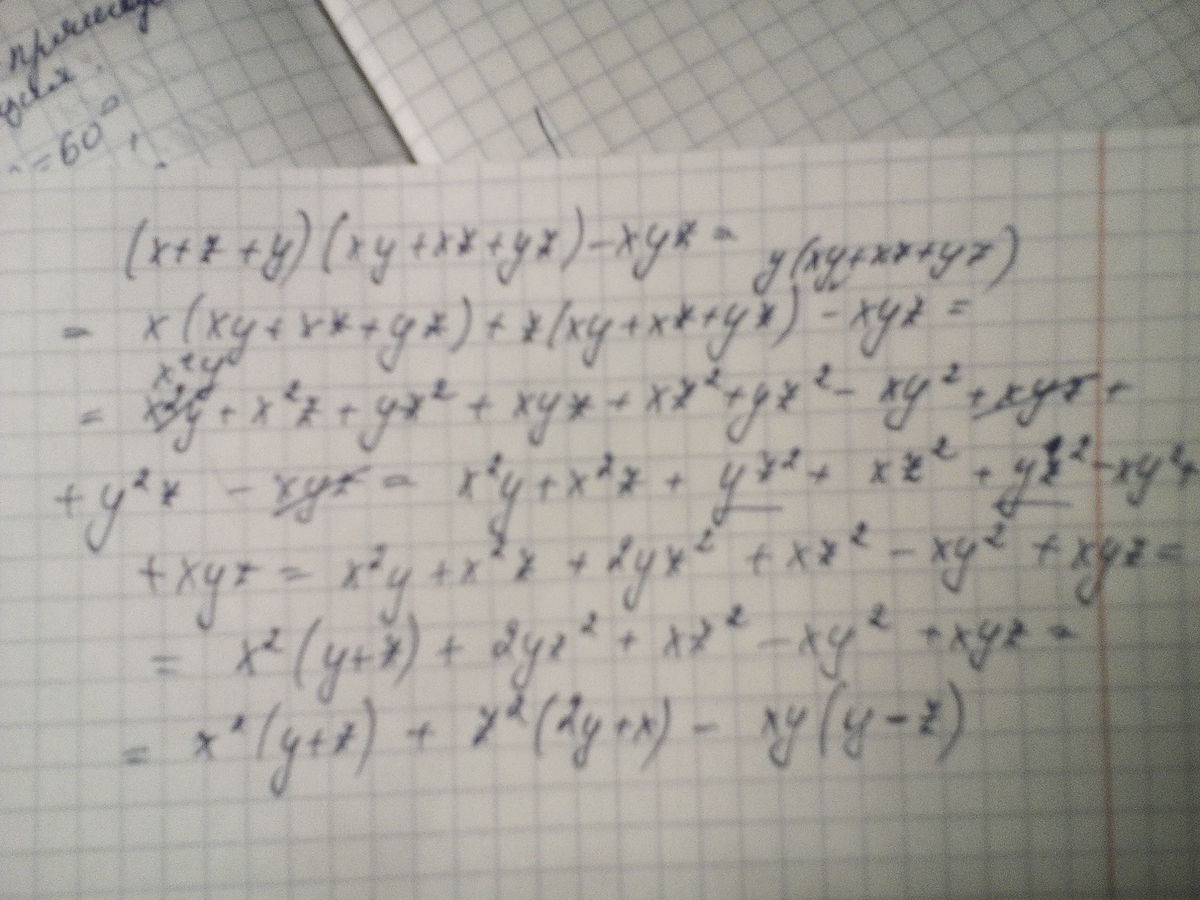 = 60°,
(x+z+y)(xy+xz+yz)-xyz=
y(xy+xz+yz)
= x(xy+xz+yz)+z(xy+xz+yz)-xyz=
x²y
= x²y+x²z+yz²+xyz+xz²+yz²-xy²+xyz+
+y²z -xyz= x²y+x²z+yz²+xz²+yz²-xy²+
+xyz= x²y+x²z+2yz²+xz²-xy²+xyz=
= x²(y+z)+2yz²+xz²-xy²+xyz=
= x²(y+z)+z²(2y+x)-xy(y-z)